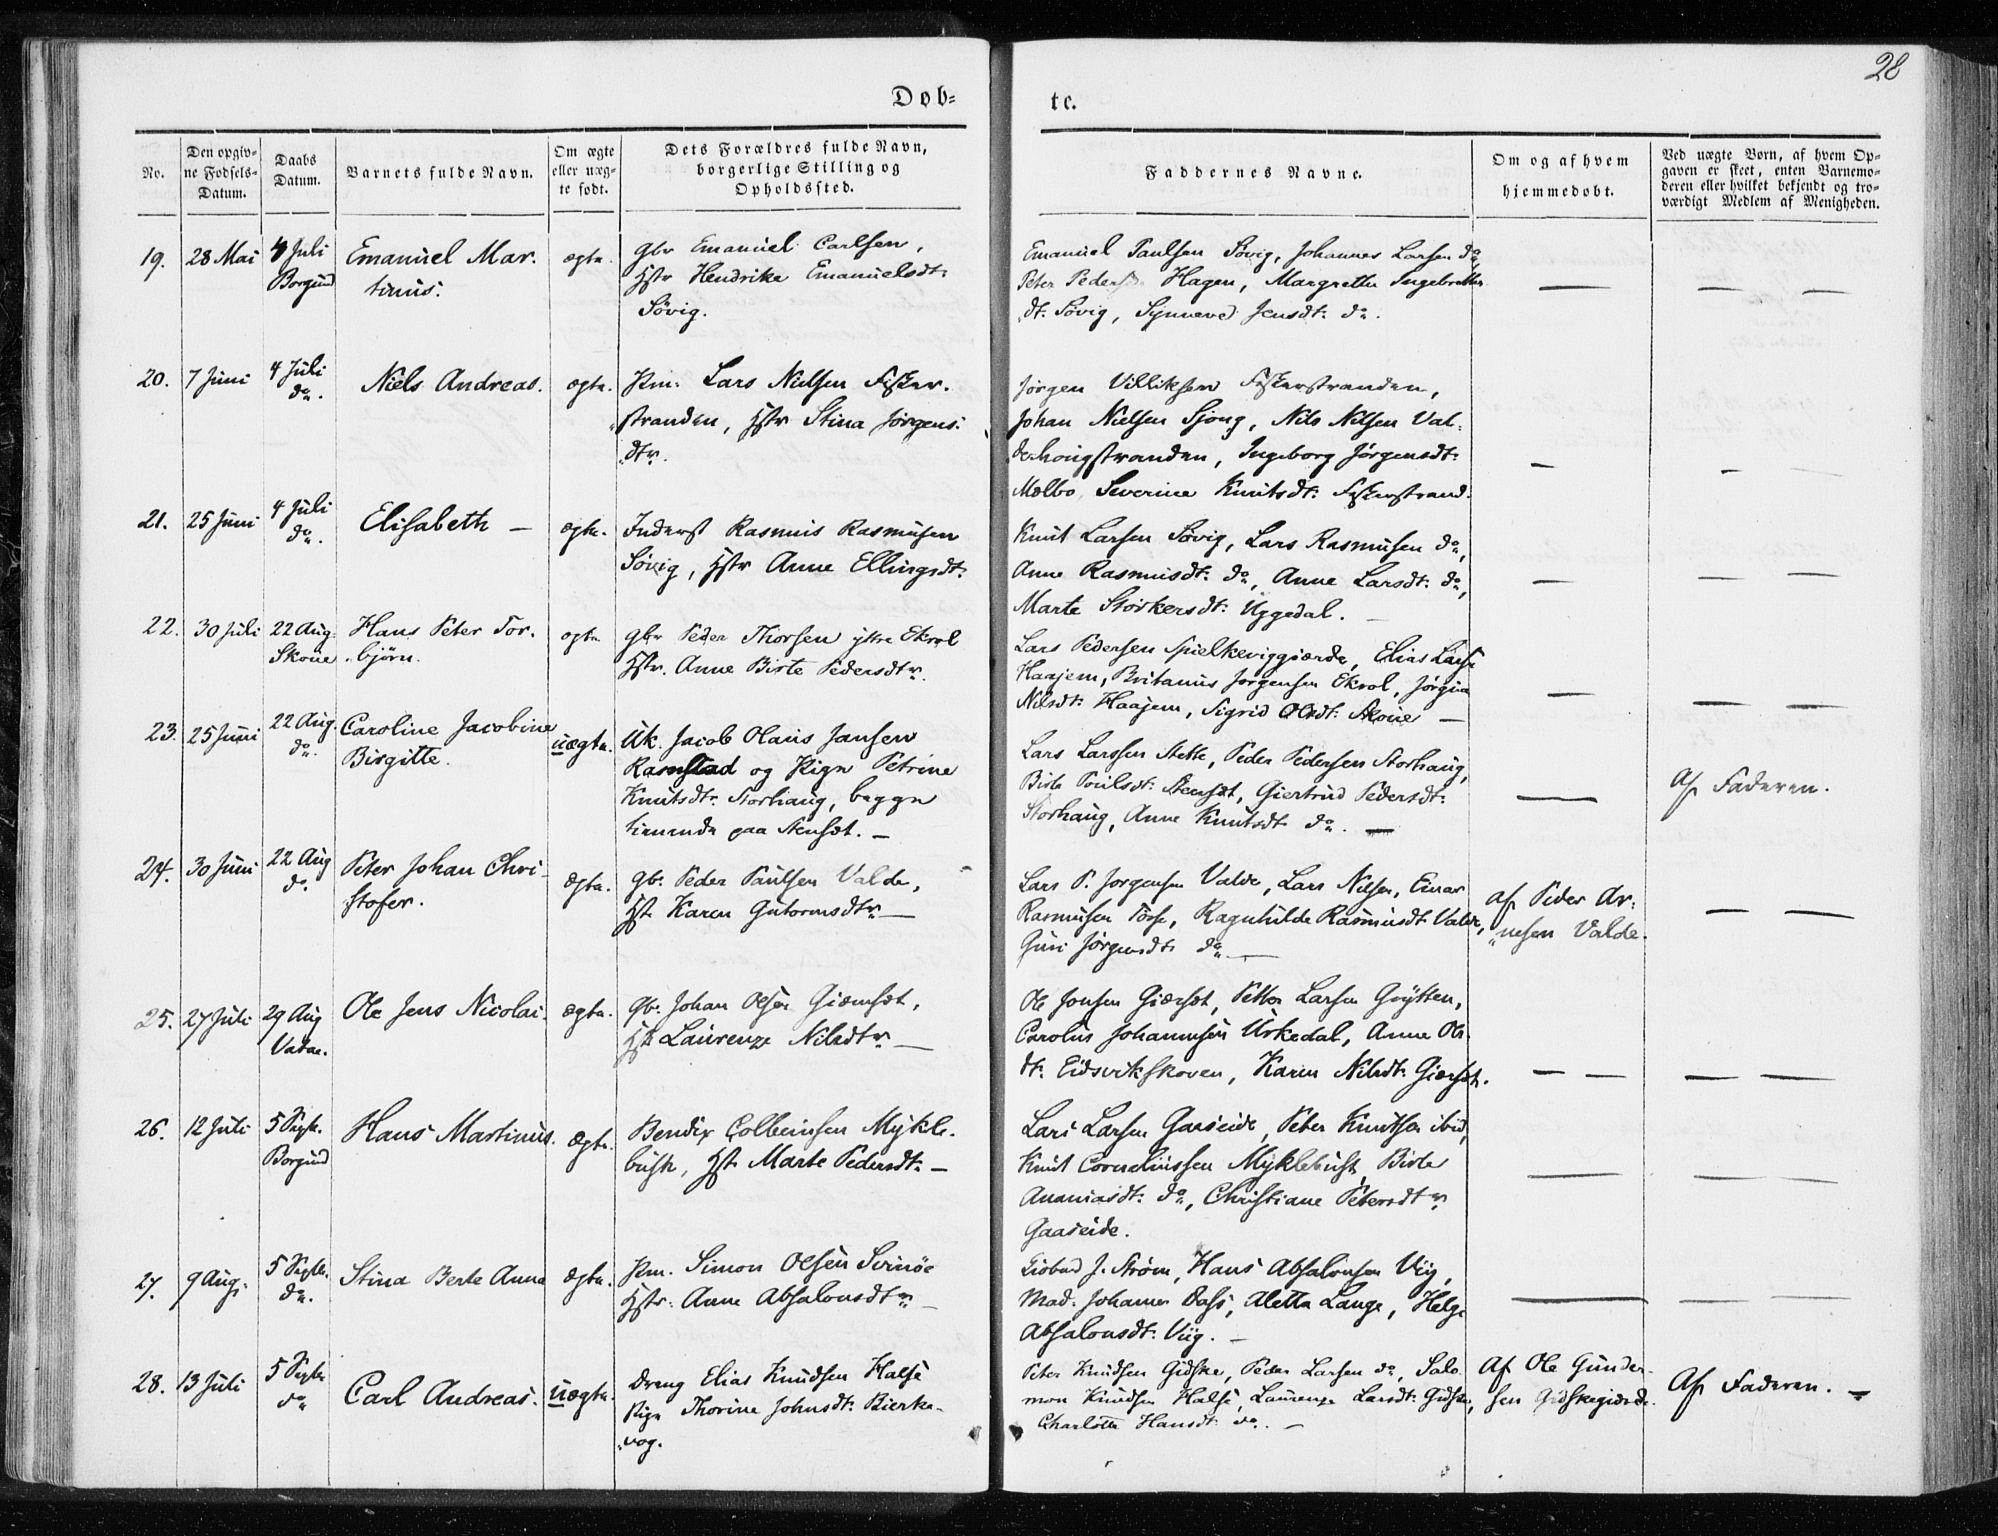 28
Døb=
te.
No.
Den opgiv=
ne Fødsels=
Datum.
Daabs
Datum.
Barnets fulde Navn.
Om ægte
eller uæg=
te født.
Dets Forældres fulde Navn,
borgerlige Stilling og
Opholdssted.
Faddernes Navne.
Om og af hvem
hjemmedøbt.
Ved uægte Børn, af hvem Op=
gaven er skeet, enten Barnemo=
deren eller hvilket bekjendt og tro=
værdigt Medlem af Menigheden.
19. 28 Mai 4 Juli
Borgund
Emanuel Mar.
tinus.
ægte.
Gbr Emanuel Carlsen,
Hstr Hendrike Emanuelsdt:
Søvig.
Emanuel Paulsen Søvig, Johannes Larsen do,
Peter Peders Hagen, Margrethe Ingebretten
dt. Søvig, Synneve Jensdt: do.
— — —
20. 7 Juni 4 Juli
do.
Niels Andreas.
ægte.
Pm. Lars Nielsen Fisker.
stranden, Hstr Stina Jørgens.
dtr.
Jørgen Villiksen Fiskerstranden,
Johan Nielsen Sjong, Nils Nilsen Val.
derhougstranden, Ingeborg Jørgensdt:
Molbo, Severine Knutsdt: Fiskerstrand.
— — —
21. 25 Juni 4 Juli
do.
Elisabeth —
ægte.
Inderst Rasmus Rasmusen
Søvig, Hstr Anne Ellingsdt.
Knut Larsen Søvig, Lars Rasmusen do,
Anne Rasmusdt: do, Anne Larsdt: do,
Marte Storkersdt: Uggedal.
— — —
22. 30 Juli 22 Aug.
Skoue
Hans Peter Tor.
bjørn.
ægte
Gbr Peder Thorsen ytre Ekrol
Hstr. Anne Birte Pedersdtr.
Lars Pedersen Spielkeviggiærde, Elias Lars
Haajem, Britanus Jørgensen Ekrol, Jørgine
Nilsdt: Haajem, Sigrid Olsdt: Skoue —
— — —
23. 25 Juni 22 Aug.
do.
Caroline Jacobine
Birgitte.
uægte.
Uk. Jacob Olaus Jansen
Ramstad og Pign Petrine
Knutsdt: Storhaug, begge
tienende paa Stensæt. —
Lars Larssen Stette, Peder Pedersen Storhaug,
Birte Poulsdt: Stensæt, Giertrud Pedersdt:
Storhaug, Anne Knutsdt do. —
—
Af Faderen.
24. 30 Juni 22 Aug
do.
Peter Johan Chri-
stofer.
ægte.
Gb. Peder Paulsen Valde,
Hst. Karen Gutormsdtr —
Lars P. Jørgensen Valde, Lars Nilsen, Einar
Rasmusen Torse, Ragnhilde Rasmusdt Valde,
Guri Jørgensdt: do —
af Peder Ar=
nesen Valde.
— —
25. 27 Juli 29 Aug
Vatne.
Ole Jens Nicolai.
ægte.
Gb. Johan Olsen Giæmsæt,
Hst. Laurenze Nilsdtr —
Ole Jonsen Giærsæt, Petter Larsen Grytten,
Carolus Johannesen Urkedal, Anne Ols
dt. Eidsvikskoven, Karen Nilsdt: Giærsæt.
— — — —
26. 12 Juli 5 Septr.
Borgund
Hans Martinus.
ægte.
Bendix Colbeinsen Mykle.
bust, Hst. Marte Pedersdt. —
Lars Larsen Gaaseide, Peter Knutsen ibid,
Knut Corneliussen Myklebust, Birte
Ananiasdt: do, Christiane Petersdtr
Gaaseide.
— — —
27. 9 Aug. 5 Septr.
do.
Stina Berte Anna
ægte.
Pm. Simon Olsen Svinøe
Hstr. Anne Absalonsdtr —
J. Strøm, Hans Absalonsen Viig,
Mad. Johanne Dahs, Aletta Lange, Helge
Absalonsdt: Viig. —
— — —
28. 13 Juli 5 Septr
do
Carl Andreas.
uægte.
Dreng Elias Knudsen Halse
Pign Thorine Johnsdt: Bierke-
vog.
Peter Knudsen Gidske, Peder Larsen do, Salo
mon Knudsen Halse, Laurenze Larsdt: Gidske,
Charlotte Hansdt: do. —
Af Ole Gunder-
sen Gidskegiærde.
Af Faderen. —